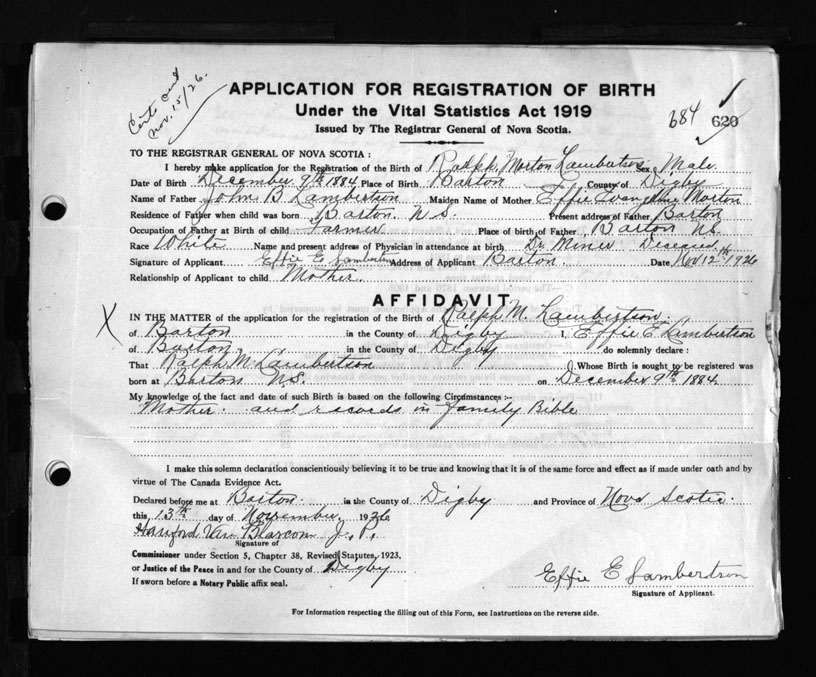 Certs out
Nov. 15/26.
APPLICATION FOR REGISTRATION OF BIRTH
Under the Vital Statistics Act 1919
Issued by The Registrar General of Nova Scotia.
684 620
TO THE REGISTRAR GENERAL OF NOVA SCOTIA :
I hereby make application for the Registration of the Birth of Ralph Morton Lambertson Sex Male
Date of Birth December 9th 1884 Place of Birth Barton County of Digby
Name of Father John B Lambertson Maiden Name of Mother Effie Evangeline Morton
Residence of Father when child was born Barton. N S. Present address of Father Barton
Occupation of Father at Birth of child Farmer Place of birth of Father, Barton N.S.
Race White Name and present address of Physician in attendance at birth Dr Miner Deceased
Signature of Applicant Effie E Lambertson Address of Applicant Barton. Date Nov 12th 1926
Relationship of Applicant to child Mother.
AFFIDAVIT
X IN THE MATTER of the application for the registration of the Birth of Ralph M. Lambertson.
of Barton in the County of Digby I, Effie E Lambertson
of Barton in the County of Digby do solemnly declare :
That Ralph M Lambertson Whose Birth is sought to be registered was
born at Barton N.S. on December 9th 1884.
My knowledge of the fact and date of such Birth is based on the following Circumstances :-
Mother. and records in family Bible
I make this solemn declaration conscientiously believing it to be true and knowing that it is of the same force and effect as if made under oath and by
virtue of The Canada Evidence Act.
Declared before me at Barton. in the County of Digby and Province of Nova Scotia.
this 13th day of November 1926
Hanford Van Blarcom J. P.
Signature of
Commissioner under Section 5, Chapter 38, Revised Statutes, 1923.
or Justice of the Peace in and for the County of Digby
If sworn before a Notary Public affix seal.
Effie E Lambertson
Signature of Applicant.
For Information respecting the filling out of this Form, see Instructions on the reverse side.